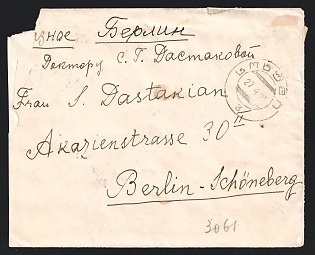 Берлин
Доктору С. Г. Дастаковой
Frau S. Dastakian
Akazienstrasse 30 II
Berlin-Schöneberg
3061